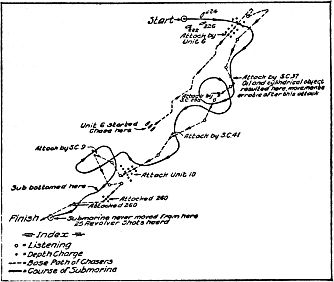 Start
Attack by
Unit 6
Attack by S.C.37
Oil and cylindrical object
resulted here, movements
erratic after this attack
Attack by
Unit 6 started
chase here
Attack by S.C.41
Attack by S.C.9
Attack Unit 10
Sub bottomed here
Attacked 260
Attacked 260
Finish
Submarine never moved from here
25 Revolver Shots heard
Index
Listening
Depth Charge
Base Path of Chasers
Course of Submarine